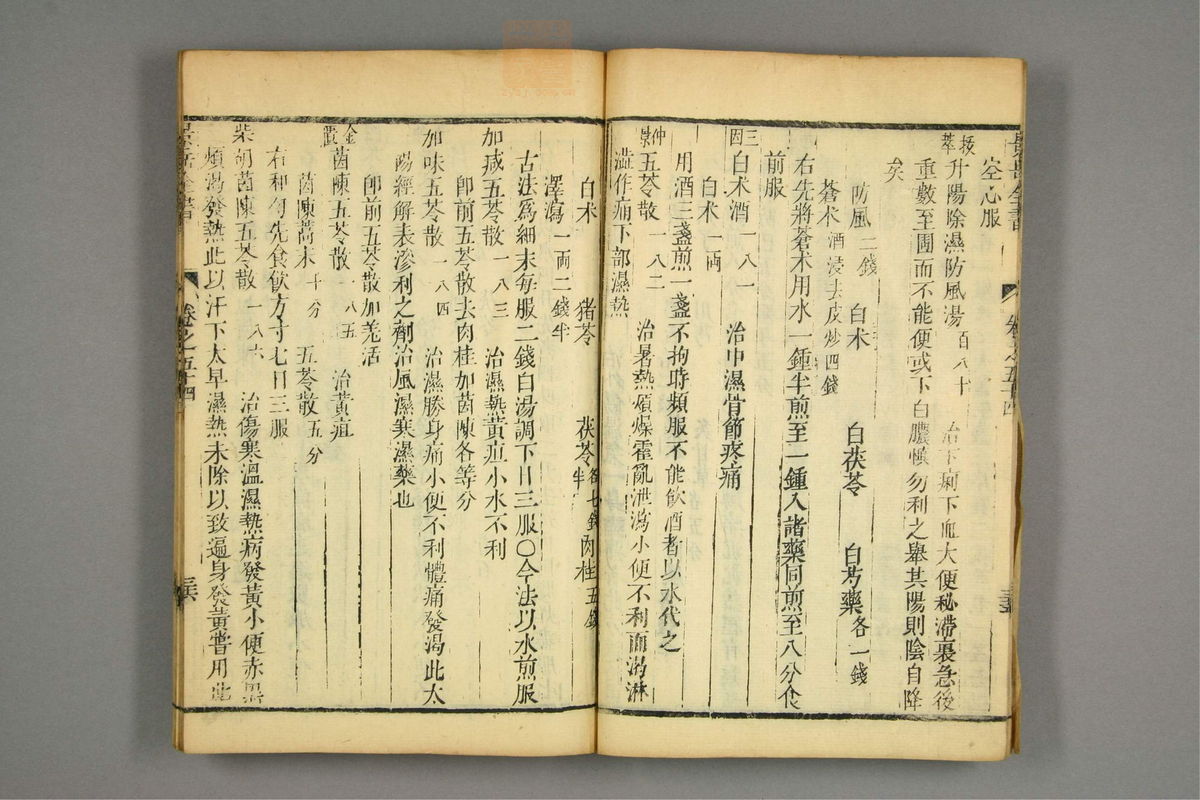 景岳全書 卷之五十四
空心服
拔萃升陽除濕防風湯 百八十 治下痢下血大便秘滯裏急後
重數至圊而不能便或下白膿慎勿利之舉其陽則陰自降
矣
防風 二錢 白术 白茯苓 白芍藥 各一錢
蒼术 酒浸去皮炒四錢
右先將蒼术用水一鍾半煎至一鍾入諸藥同煎至八分食
前服
三因白术酒 一八一 治中濕骨節疼痛
白术 一兩
用酒三盞煎一盞不拘時頻服不能飲酒者以水代之
仲景五苓散 一八二 治暑熱煩燥霍亂泄瀉小便不利而渴淋
澁作痛下部濕熱
白术 猪苓 茯苓 各七錢半 肉桂 五錢
澤瀉 一兩二錢半
古法為細末每服二錢白湯調下日三服〇今法以水煎服
加減五苓散 一八三 治濕熱黃疸小水不利
卽前五苓散去肉桂加茵陳各等分
加味五苓散 一八四 治濕勝身痛小便不利體痛發渴此太
陽經解表滲利之劑治風濕寒濕藥也
卽前五苓散加羌活
金匱茵陳五苓散 一八五 治黃疸
茵陳蒿末 十分 五苓散 五分
右和勻先食飲方寸匕日三服
柴胡茵陳五苓散 一八六 治傷寒溫濕熱病發黃小便赤黑
煩渴發熱此以汗下太早濕熱未除以致遍身發黃嘗用此
景岳全書 卷之五十四